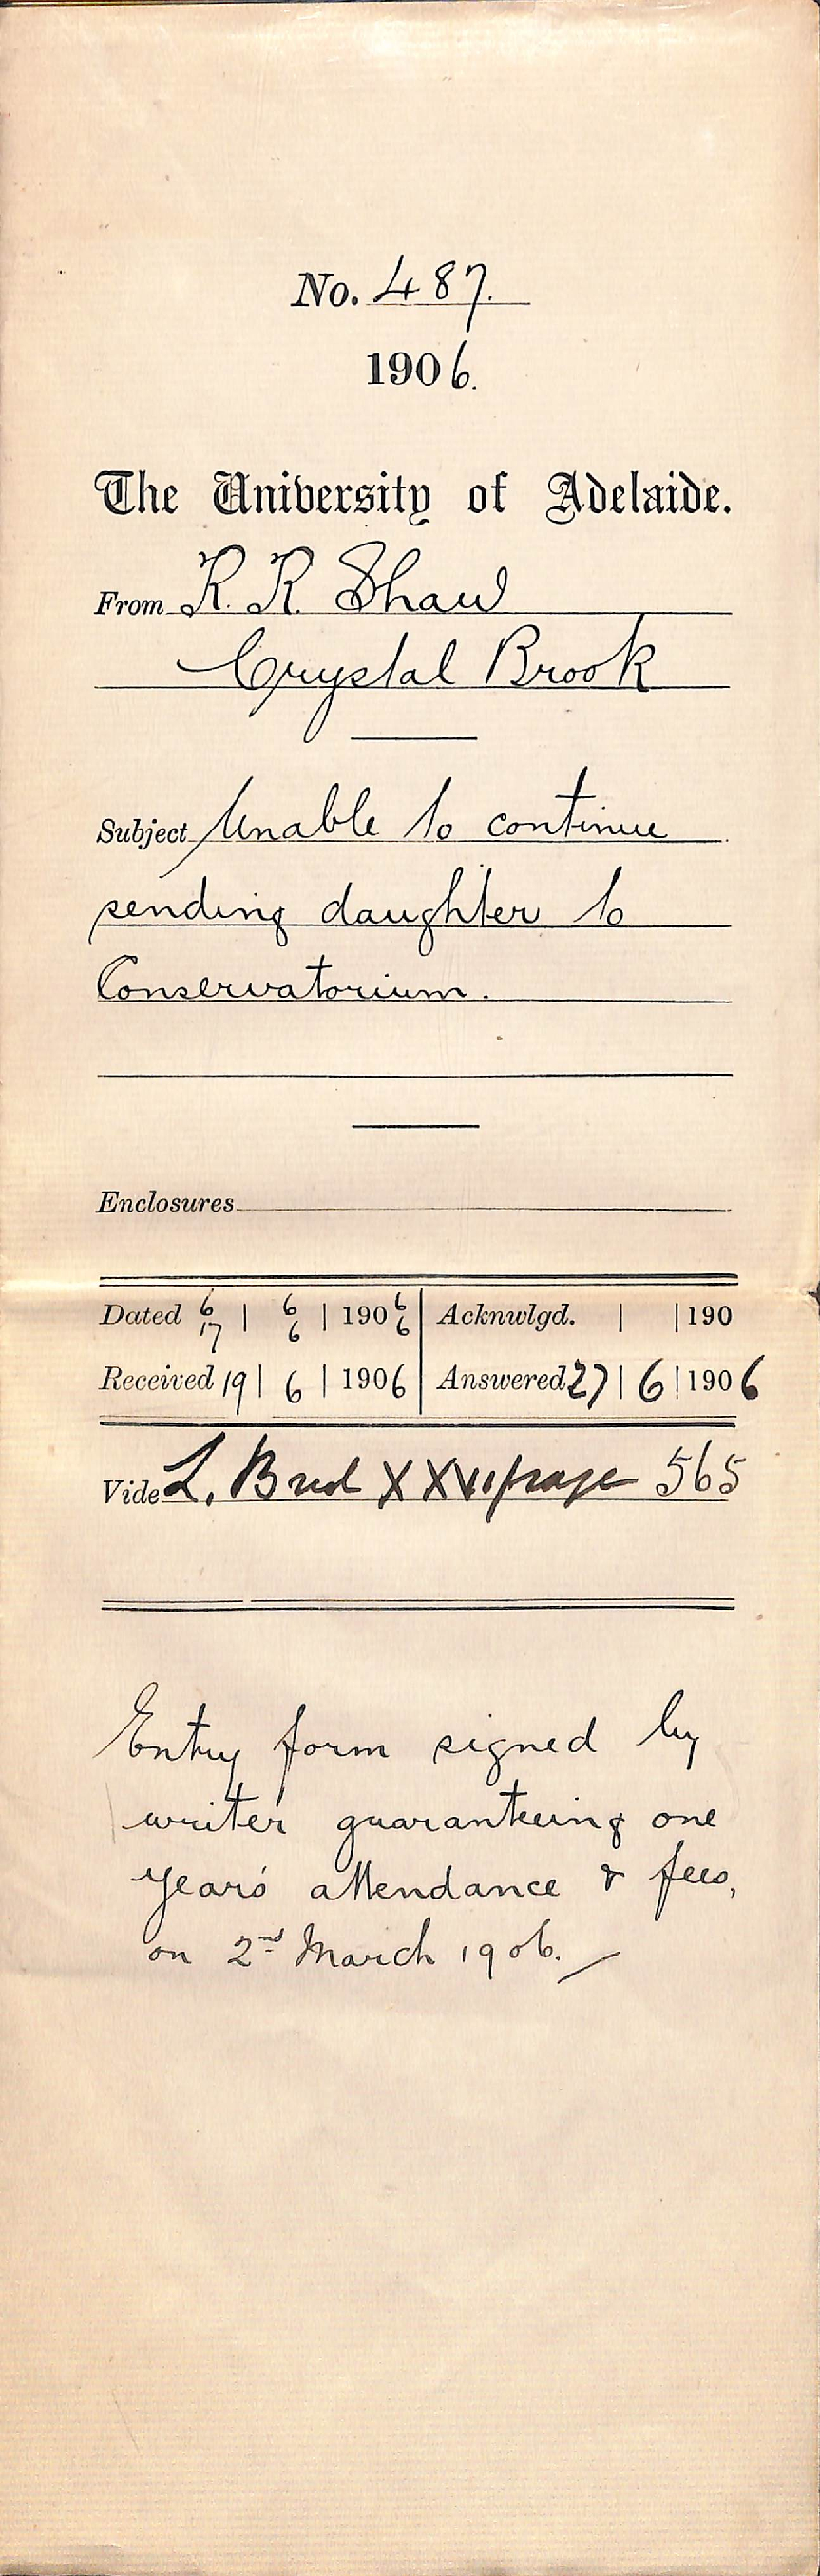 No. 487.
1906.
The University of Adelaide.
From R. R. Shaw
Crystal Brook
Subject Unable to continue
sending daughter to
Conservatorium.
Enclosures
Dated 6 | 6 | 1906 Acknwlgd. | | 190
17 6 6
Received 19 | 6 | 1906 Answered 27 | 6 | 1906
Vide L. XXVI page 565
Entry form signed by
writer guaranteeing one
year's attendance & fees,
on 2nd March 1906.